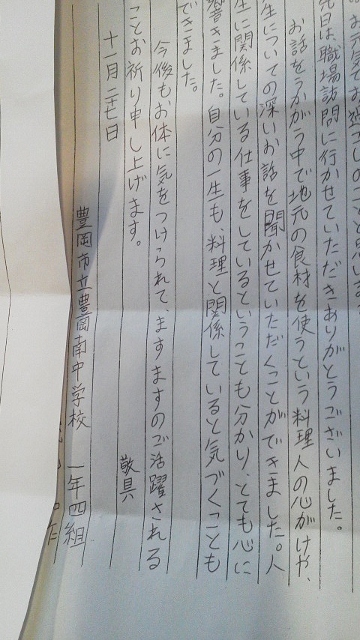 先日は職場訪問に行かせていただきありがとうございました。
お話をうかがう中で地元の食材を使うという料理人の心がけや、
生についての深いお話を聞かせていただくことができました。人
生に関係している仕事をしているということも分かり、とても心に
響きました。自分の一生も、料理と関係していると気づくことも
できました。
今後もお体に気をつけられて、ますますのご活躍される
ことお祈り申し上げます。
敬具
十一月二十七日
豊岡市立豊岡南中学校 一年四組